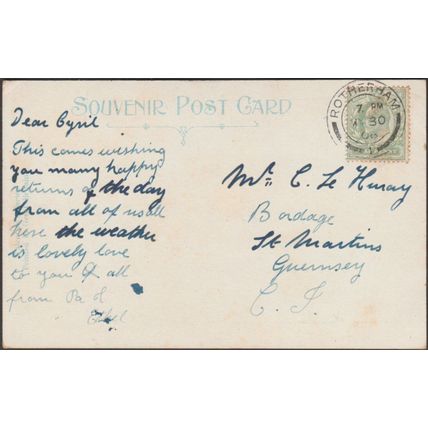 SOUVENIR POST CARD
ROTHERHAM
7 PM
30
06
Dear Cyril
This comes wishing
you many happy
returns of the day
from all of us all
here the weather
is lovely love
to you & all
from Pa &
Ethel
Mr. C. Le Huray
Bordage
St Martins
Guernsey
C. I.